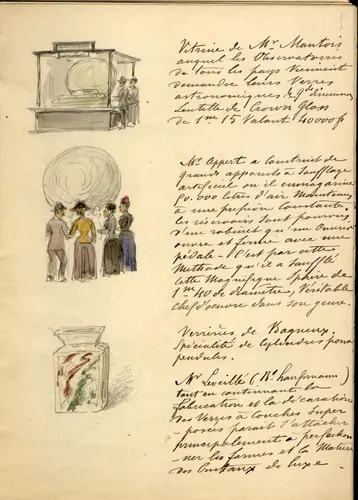 Vitrine de Mr Mantois
auquel les Observatoires
de tous les pays viennent
demander leurs Verres
astronomiques de gde dimension
Lentille de Crown Glass
de 1m 15 Valant 40000f
Mr Appert a construit de
grands appareils à soufflage
artificiel ou il emmagasine
60.000 litres d'air maintenus
à une pression constante.
les réservoirs sont pourvus
d'un robinet qu'un Ouvrier
ouvre et ferme avec une
pédale. C'est par cette
Methode qu'il a soufflé
cette Magnifique Sphère de
1m 40 de diamètre, Véritable
chef d'oeuvre dans son genre.
Verreries de Bagneux
Spécialité de Cylindres pour
pendules.
Mr Leveillé (
tout en continuant la
fabrication et la décoration
des Verres à couches Super
posées parait s'attacher
principalement à perfection
ner les formes et la Matière
des Cristaux de luxe